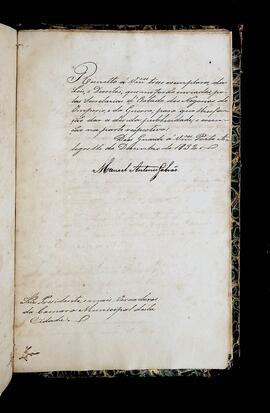 Remetto á Vmces os exemplares, das
Leis, e Decretos, que me forão enviados pe-
las Secretarias d'Estado dos Negocios do
Imperio, e da Guerra, para que lhes fa-
ção dar a devida publicidade, e execu-
ção na parte respectiva.
Deos Guarde á Vmces Porto Ale-
gre 11 de Dezembro de 1832
Manoel Antonio Galvão
Snrs Presidente, e mais Vereadores
da Camara Municipal desta
Cidade.